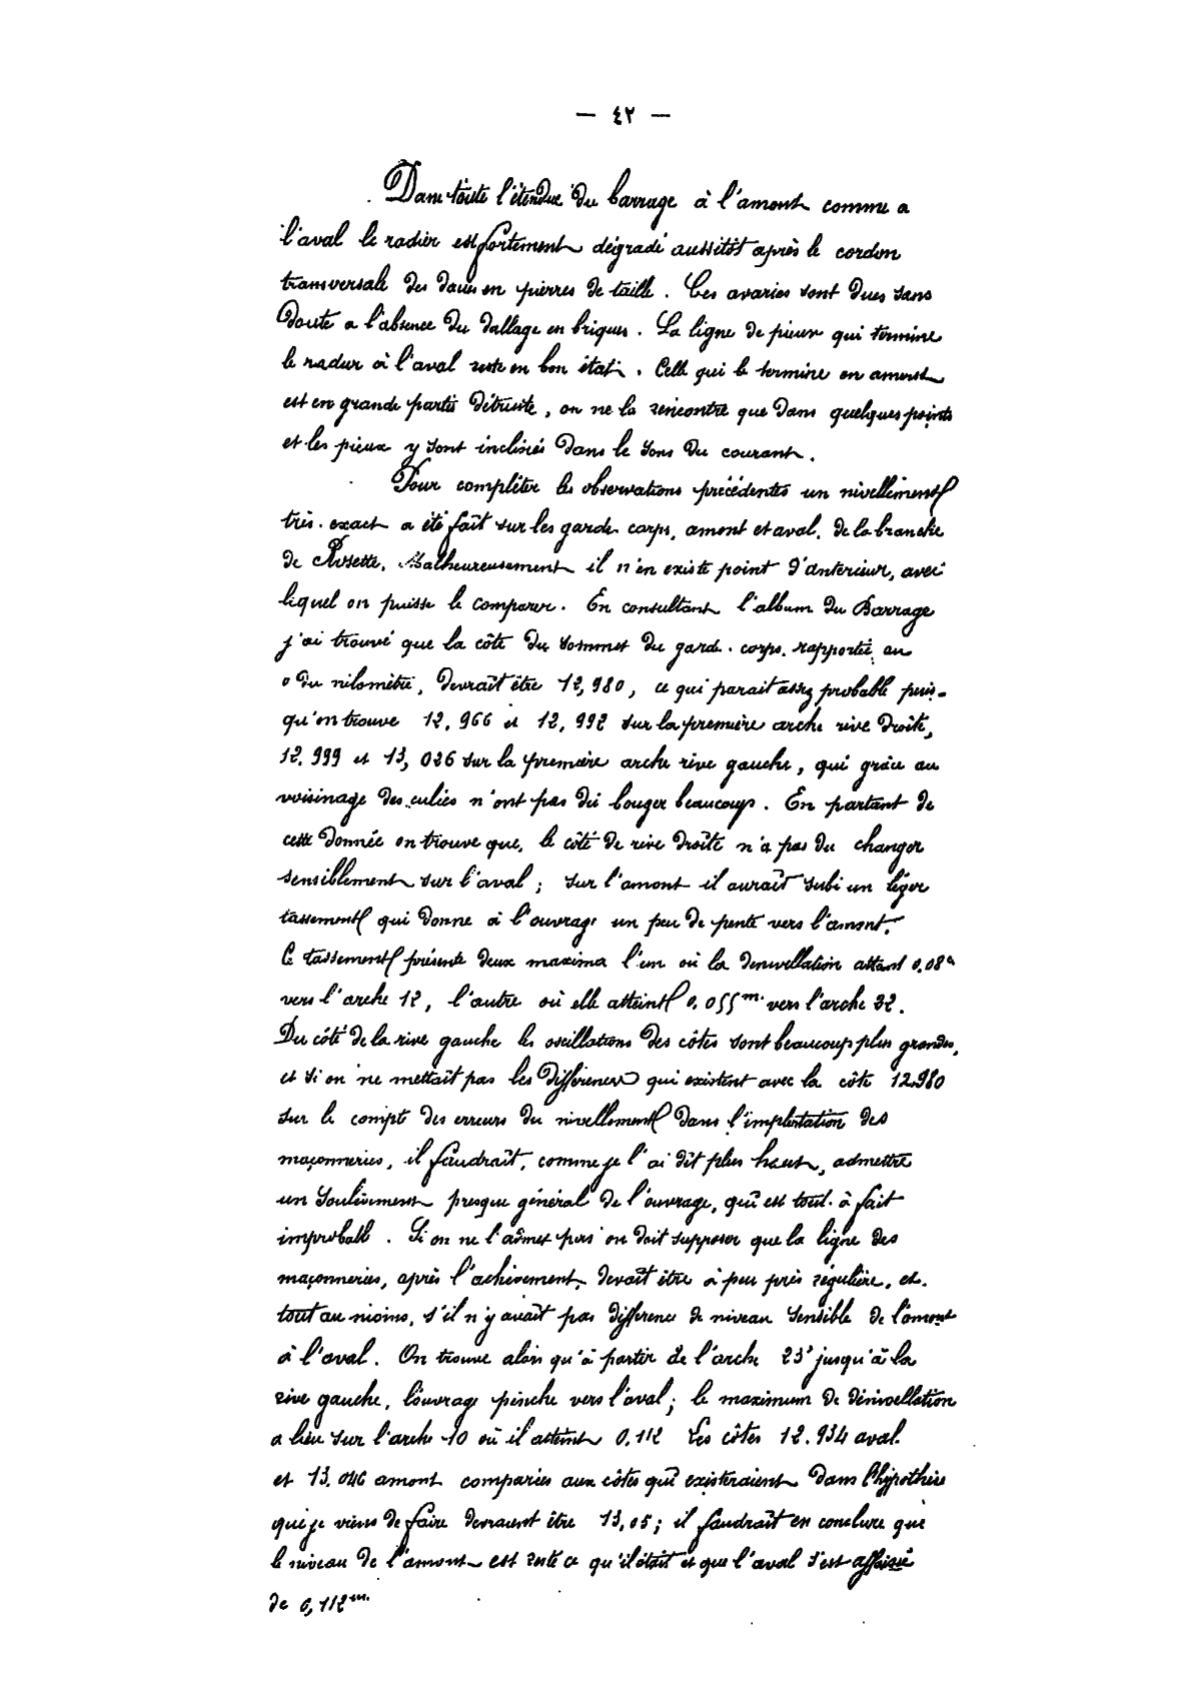 — ٤٢ —
Dans toute l'étendue du barrage à l'amont comme a
l'aval le radier est fortement dégradé aussitôt après le cordon
transversale des daus en pierres de taille. Ces avaries sont dues sans
doute a l'absence du dallage en briques. La ligne de pieux qui termine
le radier à l'aval reste en bon état. Celle qui le termine en amont
est en grande partie détruite, on ne la rencontre que dans quelques points
et les pieux y sont inclinés dans le sens du courant.
Pour compléter les observations précédentes un nivellement
très-exact a été fait sur les garde-corps, amont et aval, de la branche
de Rosette. Malheureusement il n'en existe point d'anterieur, avec
lequel on puisse le comparer. En consultant l'album du Barrage
j'ai trouvé que la côte du sommet du garde-corps, rapportée au
0 du nilomètre, devrait être 12,980, ce qui parait assez probable puis-
qu'on trouve 12.966 et 12,992 sur la première arche rive droite,
12.999 et 13,026 sur la première arche rive gauche, qui grâce au
voisinage des culées n'ont pas dû bouger beaucoup. En partant de
cette donnée on trouve que, le côté de rive droite n'a pas du changer
sensiblement sur l'aval; sur l'amont il aurait subi un léger
tassement qui donne à l'ouvrage un peu de pente vers l'amont.
Ce tassement présente deux maxima l'un où la dénivellation attaint 0,08
vers l'arche 12, l'autre où elle atteint 0,055m. vers l'arche 32.
Du côté de la rive gauche les oscillations des côtes sont beaucoup plus grandes,
et si on ne mettait pas les différences qui existent avec la côte 12.980
sur le compte des erreurs du nivellement dans l'implantation des
maçonneries, il faudrait, comme je l'ai dit plus haut, admettre
un soulèvement presque général de l'ouvrage, qui est tout-à fait
improbable. Si on ne l'admet pas on doit supposer que la ligne des
maçonneries, après l'achèvement devait être à peu près régulière, et
tout au moins, s'il n'y avait pas différence de niveau sensible de l'amont
à l'aval. On trouve alors qu'à partir de l'arche 23 jusqu'à la
rive gauche, l'ouvrage penche vers l'aval; le maximum de dénivellation
a lieu sur l'arche 10 où il atteint 0.112 Les côtes 12.934 aval.
et 13.046 amont comparées aux côtes qui existeraient dans l'hypothèse
que je viens de faire devraient être 13,05; il faudrait en conclure que
le niveau de l'amont est resté ce qu'il était et que l'aval s'est affaissé
de 0,112m.